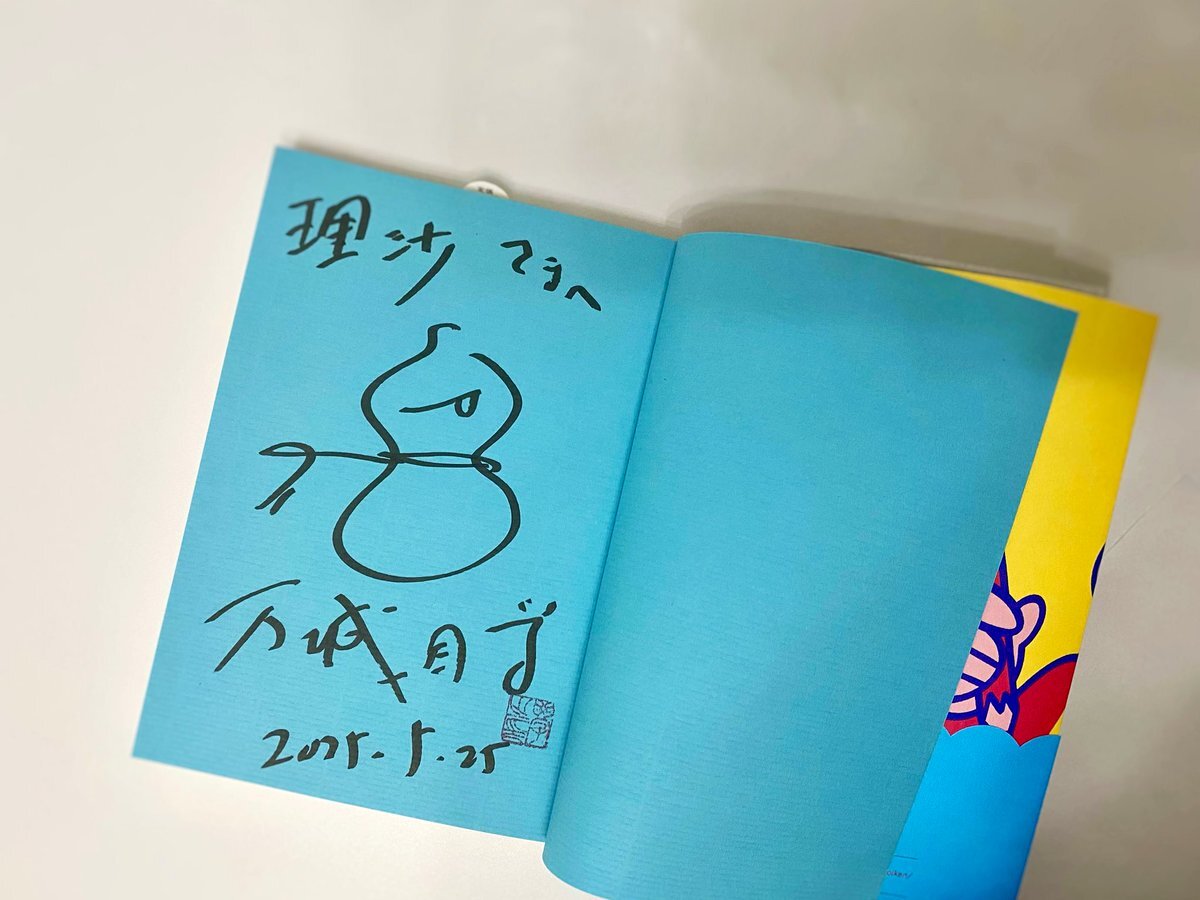 理沙さまへ
万城目学
2025.5.25
ocken/